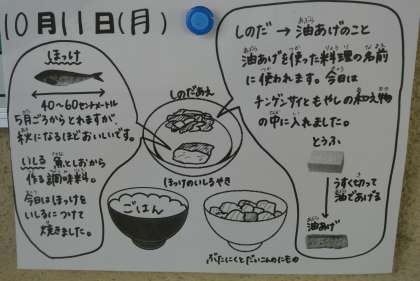 10月11日(月)
ほっけ
40〜60センチメートル
5月ごろからとれますが、
秋になるほどおいしいです。
いしる 魚としおから
作る調味料。
今日はほっけを
いしるにつけて
焼きました。
しのだあえ
ほっけのいしるやき
ごはん
ぶたにくとだいこんのにもの
しのだ → 油あげのこと
油あげを使った料理の名前
に使われます。今日は
チンゲンサイともやしの和え物
の中に入れました。
とうふ
うすく切って
油であげる
油あげ